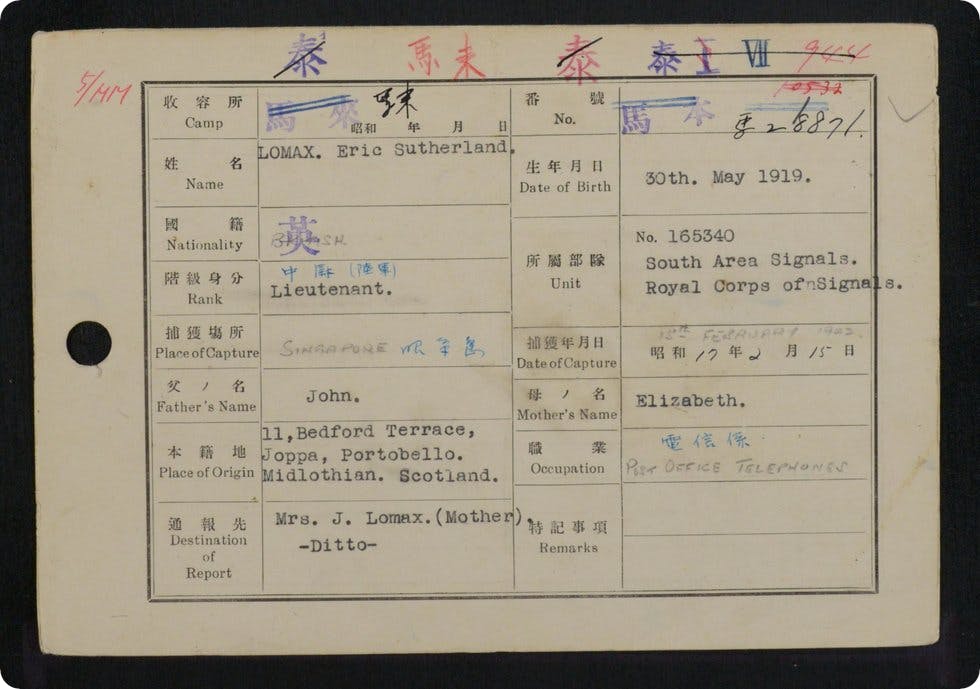 泰 馬来 泰 泰 I VII 944
5/MM 10532
收容所 馬來 馬来
Camp 昭和 年 月 日
番號 馬本
No. 馬2 8871.
姓名 LOMAX. Eric Sutherland.
Name
生年月日 30th. May 1919.
Date of Birth
國籍 英
Nationality BRITISH
階級身分 中尉 (陸軍)
Rank Lieutenant.
所屬部隊 No. 165340
Unit South Area Signals.
Royal Corps of Signals.
捕獲場所
Place of Capture SINGAPORE 昭南島
捕獲年月日 15th FEBRUARY 1942
Date of Capture 昭和 17 年 2 月 15 日
父ノ名 John.
Father's Name
母ノ名 Elizabeth.
Mother's Name
本籍地 11,Bedford Terrace,
Place of Origin Joppa, Portobello.
Midlothian. Scotland.
職業 電信係
Occupation POST OFFICE TELEPHONES
通報先 Mrs. J. Lomax.(Mother).
Destination -Ditto-
of
Report
特記事項
Remarks